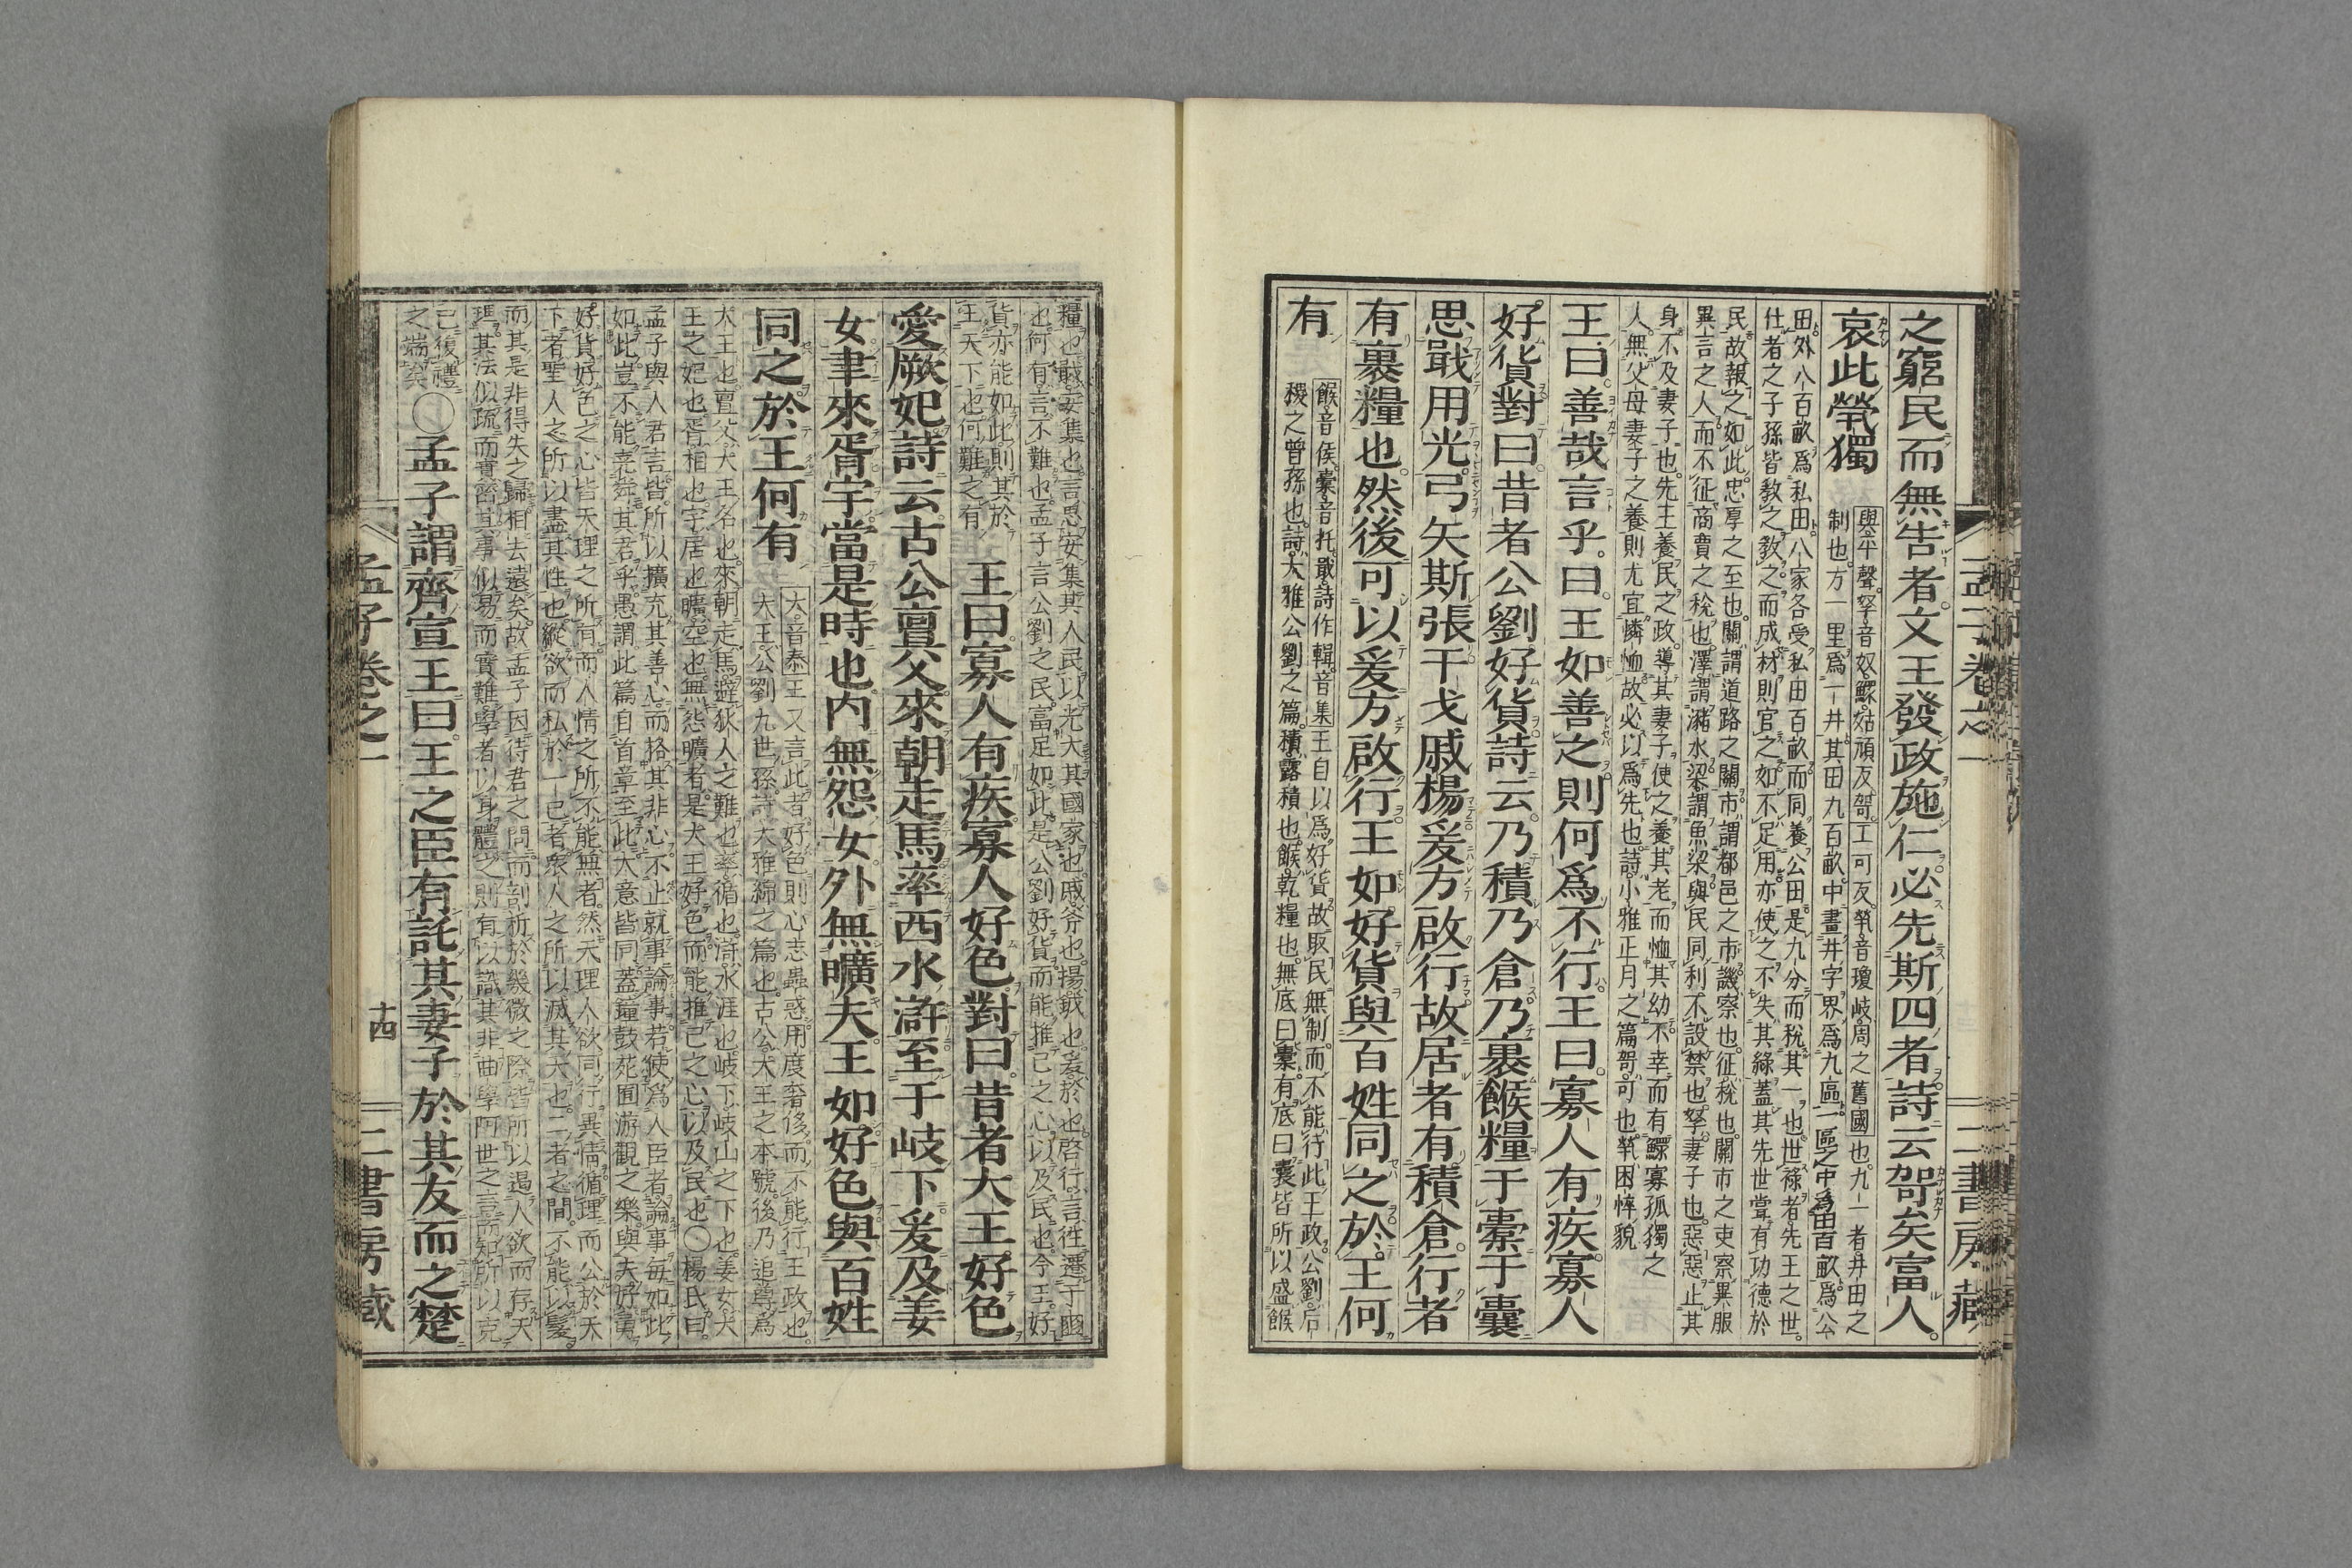 之窮民而無告者文王發政施仁必先斯四者詩云哿矣富人
哀此煢獨
與平聲孥音奴鰥姑頑反哿工可反煢音瓊岐周之舊國也九一者井田之
制也方一里爲一井其田九百畝中畫井字界爲九區一區之中爲田百畝爲公
田外八百畝爲私田八家各受私田百畝而同養公田是九分而稅其一也世祿者先王之世
仕者之子孫皆教之教之而成材則官之如不足用亦使之不失其綠蓋其先世嘗有功德於
民故報之如此忠厚之至也關謂道路之關市謂都邑之市譏察也征稅也關市之吏察異服
異言之人而不征商賈之稅也澤謂瀦水梁謂魚梁與民同利不設禁也孥妻子也惡惡止其
身不及妻子也先王養民之政導其妻子使之養其老而恤其幼不幸而有鰥寡孤獨之
人無父母妻子之養則尤宜憐恤故必以爲先也詩小雅正月之篇哿可也煢困悴貌
王曰善哉言乎曰王如善之則何爲不行王曰寡人有疾寡人
好貨對曰昔者公劉好貨詩云乃積乃倉乃裹餱糧于橐于囊
思戢用光弓矢斯張干戈戚楊爰方啟行故居者有積倉行者
有裹糧也然後可以爰方啟行王如好貨與百姓同之於王何
有
餱音侯橐音托戢詩作輯音集王自以爲好貨故取民無制而不能行此王政公劉后
稷之曾孫也詩大雅公劉之篇積露積也餱乾糧也無底曰橐有底曰囊皆所以盛餱
孟子卷之一
二書房藏
糧也戢安集也言思安集其人民以光大其國家也戚斧也揚鉞也爰於也啓行言往遷于豳
也何有言不難也孟子言公劉之民富足如此是公劉好貨而能推己之心以及民也今王好
貨亦能如此則其於
王天下也何難之有
王曰寡人有疾寡人好色對曰昔者大王好色
愛厥妃詩云古公亶父來朝走馬率西水滸至于岐下爰及姜
女聿來胥宇當是時也内無怨女外無曠夫王如好色與百姓
同之於王何有
大音泰王又言此者好色則心志蠱惑用度奢侈而不能行王政也
大王公劉九世孫詩大雅綿之篇也古公大王之本號後乃追尊爲
大王也亶父大王名也來朝走馬避狄人之難也率循也滸水涯也岐下岐山之下也姜女大
王之妃也胥相也宇居也曠空也無怨曠者是大王好色而能推己之心以及民也〇楊氏曰
孟子與人君言皆所以擴充其善心而格其非心不止就事論事若使爲人臣者論事每如此
如此豈不能堯舜其君乎愚謂此篇自首章至此大意皆同蓋鐘鼓苑囿游觀之樂與夫好勇
好貨好色之心皆天理之所有而人情之所不能無者然天理人欲同行異情循理而公於天
下者聖人之所以盡其性也縱欲而私於一己者衆人之所以滅其天也二者之間不能以髮
而其是非得失之歸相去遠矣故孟子因待君之問而剖析於幾微之際皆所以遏人欲而存天
理其法似疏而實密其事似易而實難學者以身體之則有以識其非曲學阿世之言而知所以克
己復禮
之端矣
〇孟子謂齊宣王曰王之臣有託其妻子於其友而之楚
孟子卷之一
十四
二書房藏